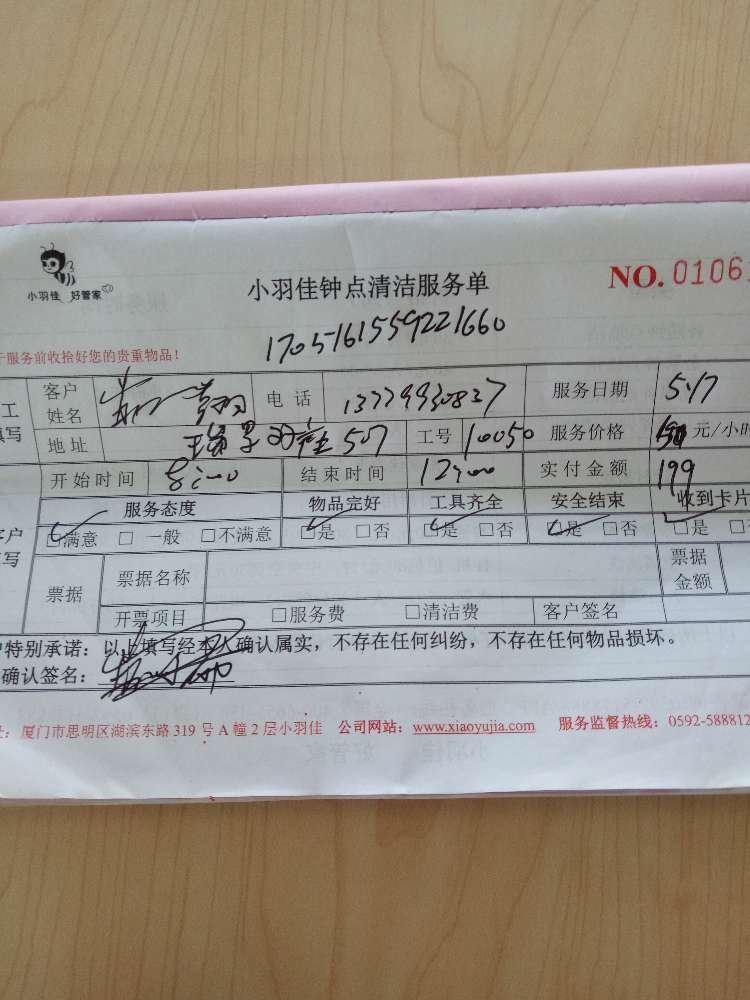 小羽佳 好管家
小羽佳钟点清洁服务单
NO. 0106
1705161559221660
于服务前收拾好您的贵重物品!
工
填写
客户姓名 电话 13779930837 服务日期 5.17
地址 507 工号 10050 服务价格 元/小时
开始时间 8:00 结束时间 12:00 实付金额 199
客户
填写
服务态度 物品完好 工具齐全 安全结束 收到卡片
☑满意 □一般 □不满意 ☑是 □否 ☑是 □否 ☑是 □否 ☑是
票据 票据名称 票据金额
开票项目 □服务费 □清洁费 客户签名
户特别承诺:以上填写经本人确认属实,不存在任何纠纷,不存在任何物品损坏。
确认签名:
址:厦门市思明区湖滨东路 319 号 A 幢 2 层小羽佳 公司网站:www.xiaoyujia.com 服务监督热线:0592-588812